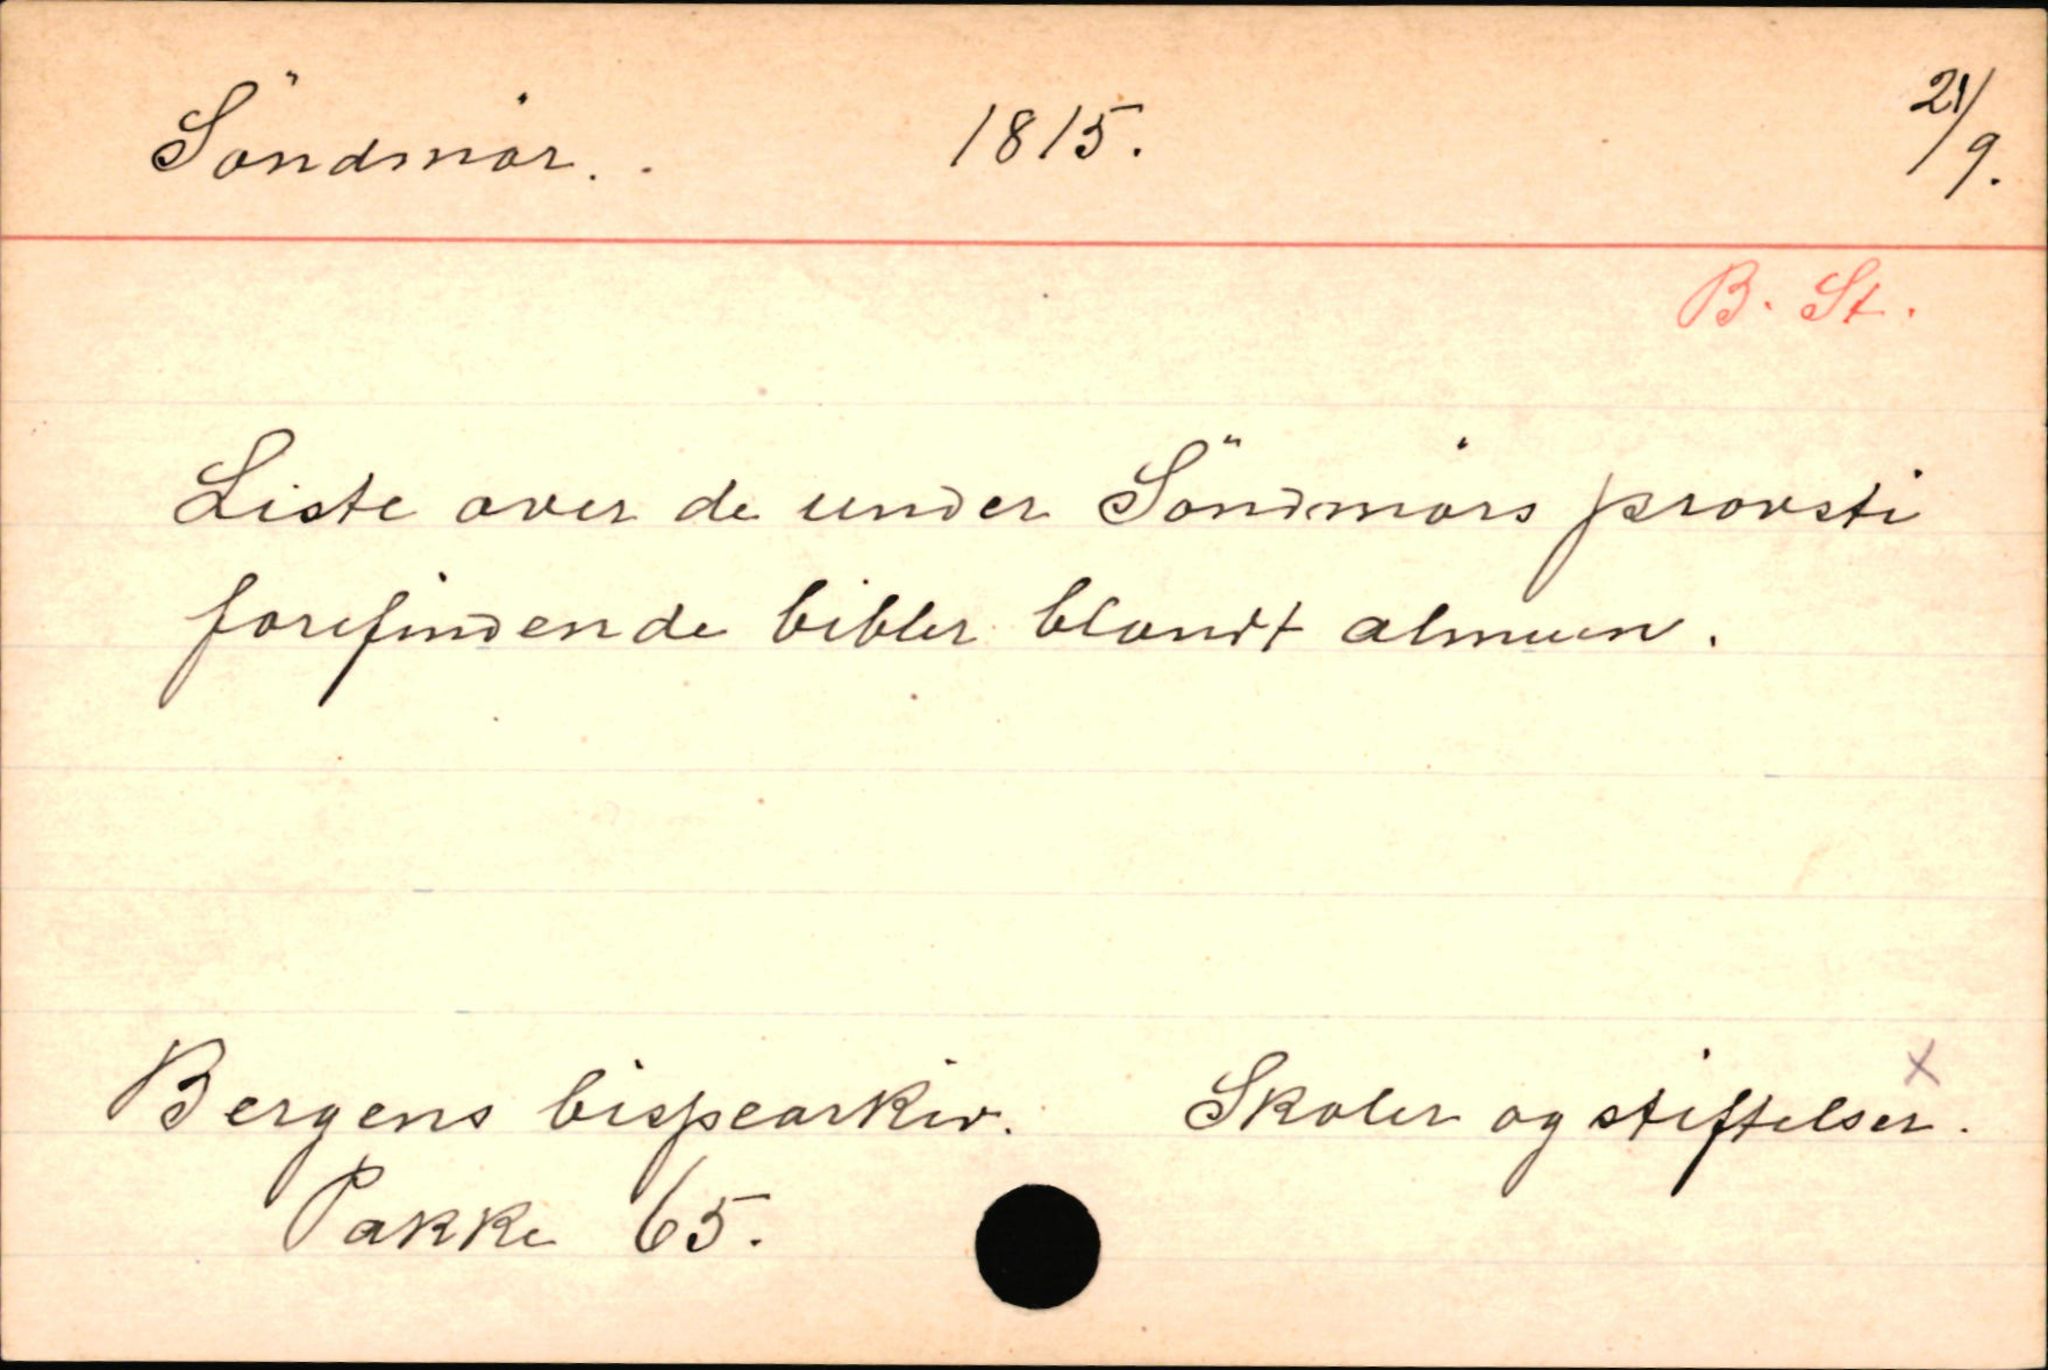 Söndmör. 1815. 21/9.
B. St.
Liste over de under Söndmörs provsti
forefindende bibler blandt almuen.
Bergens bispearkiv. Skoler og stiftelser. x
Pakke 65.